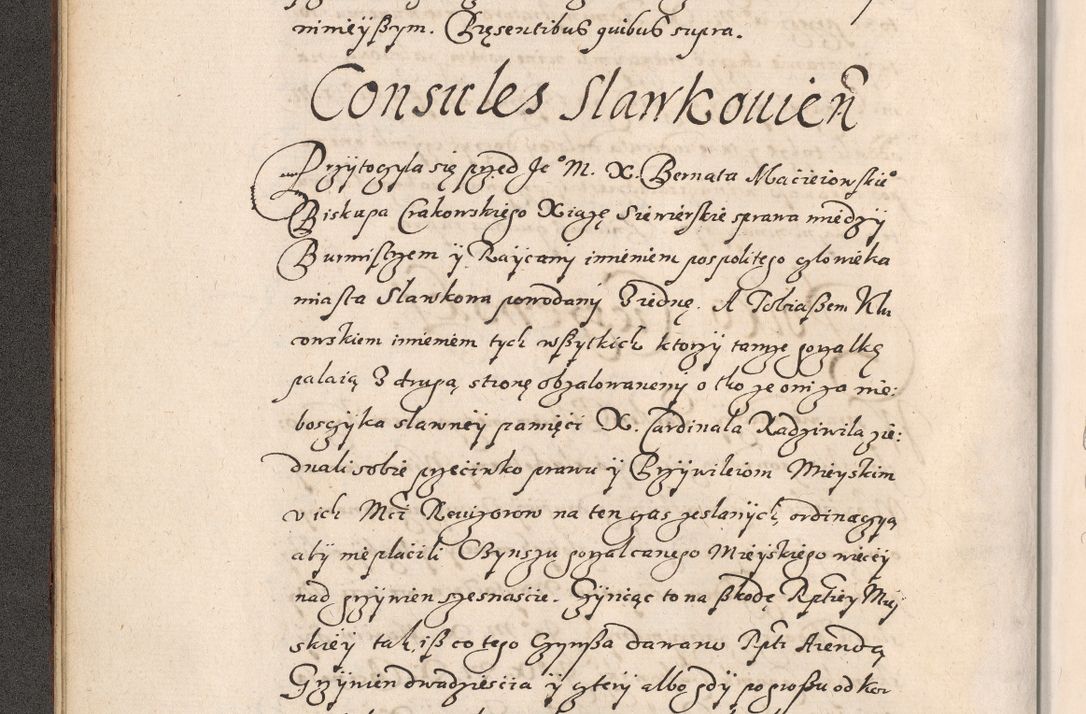 ninieyßym. Præsentibus quibus supra.
Consules Slawkouien̄
Przytoczyla się przed Je° M. X. Bernata Macieiowskie°
Biskupa Crakowskiego Xiążę Siewierskie sprawa miedzy
Burmistrzem y Raycamy imieniem pospolitego człowieka
miasta Slawkowa powodamy z iednę. A Tobiaßem Klu
cowskiem imieniem tych wßytkich ktorzy tamże gorzalkę
palaią z drugą stronę obzalowanemy o tho ze oni za nie:
bosczyka slawney pamięci X. Cardinala Radziwila zie:
dnali sobie przeciwko prawu y Przywileiom Mieyskim
v ich Mći Rewizorow na ten czas zeslanych, ordinaczyą
aby nie placili Czynszu gorzalczanego Mieyskiego wiecey
nad grzywien szesnascie. Czyniąc to na ßkodę Rptcey Miey
skiey tak, iß co tego Czynßu dawano Rptcę Arendą
Grzywien dwadziescia y cztery albo gdy po großu od kor